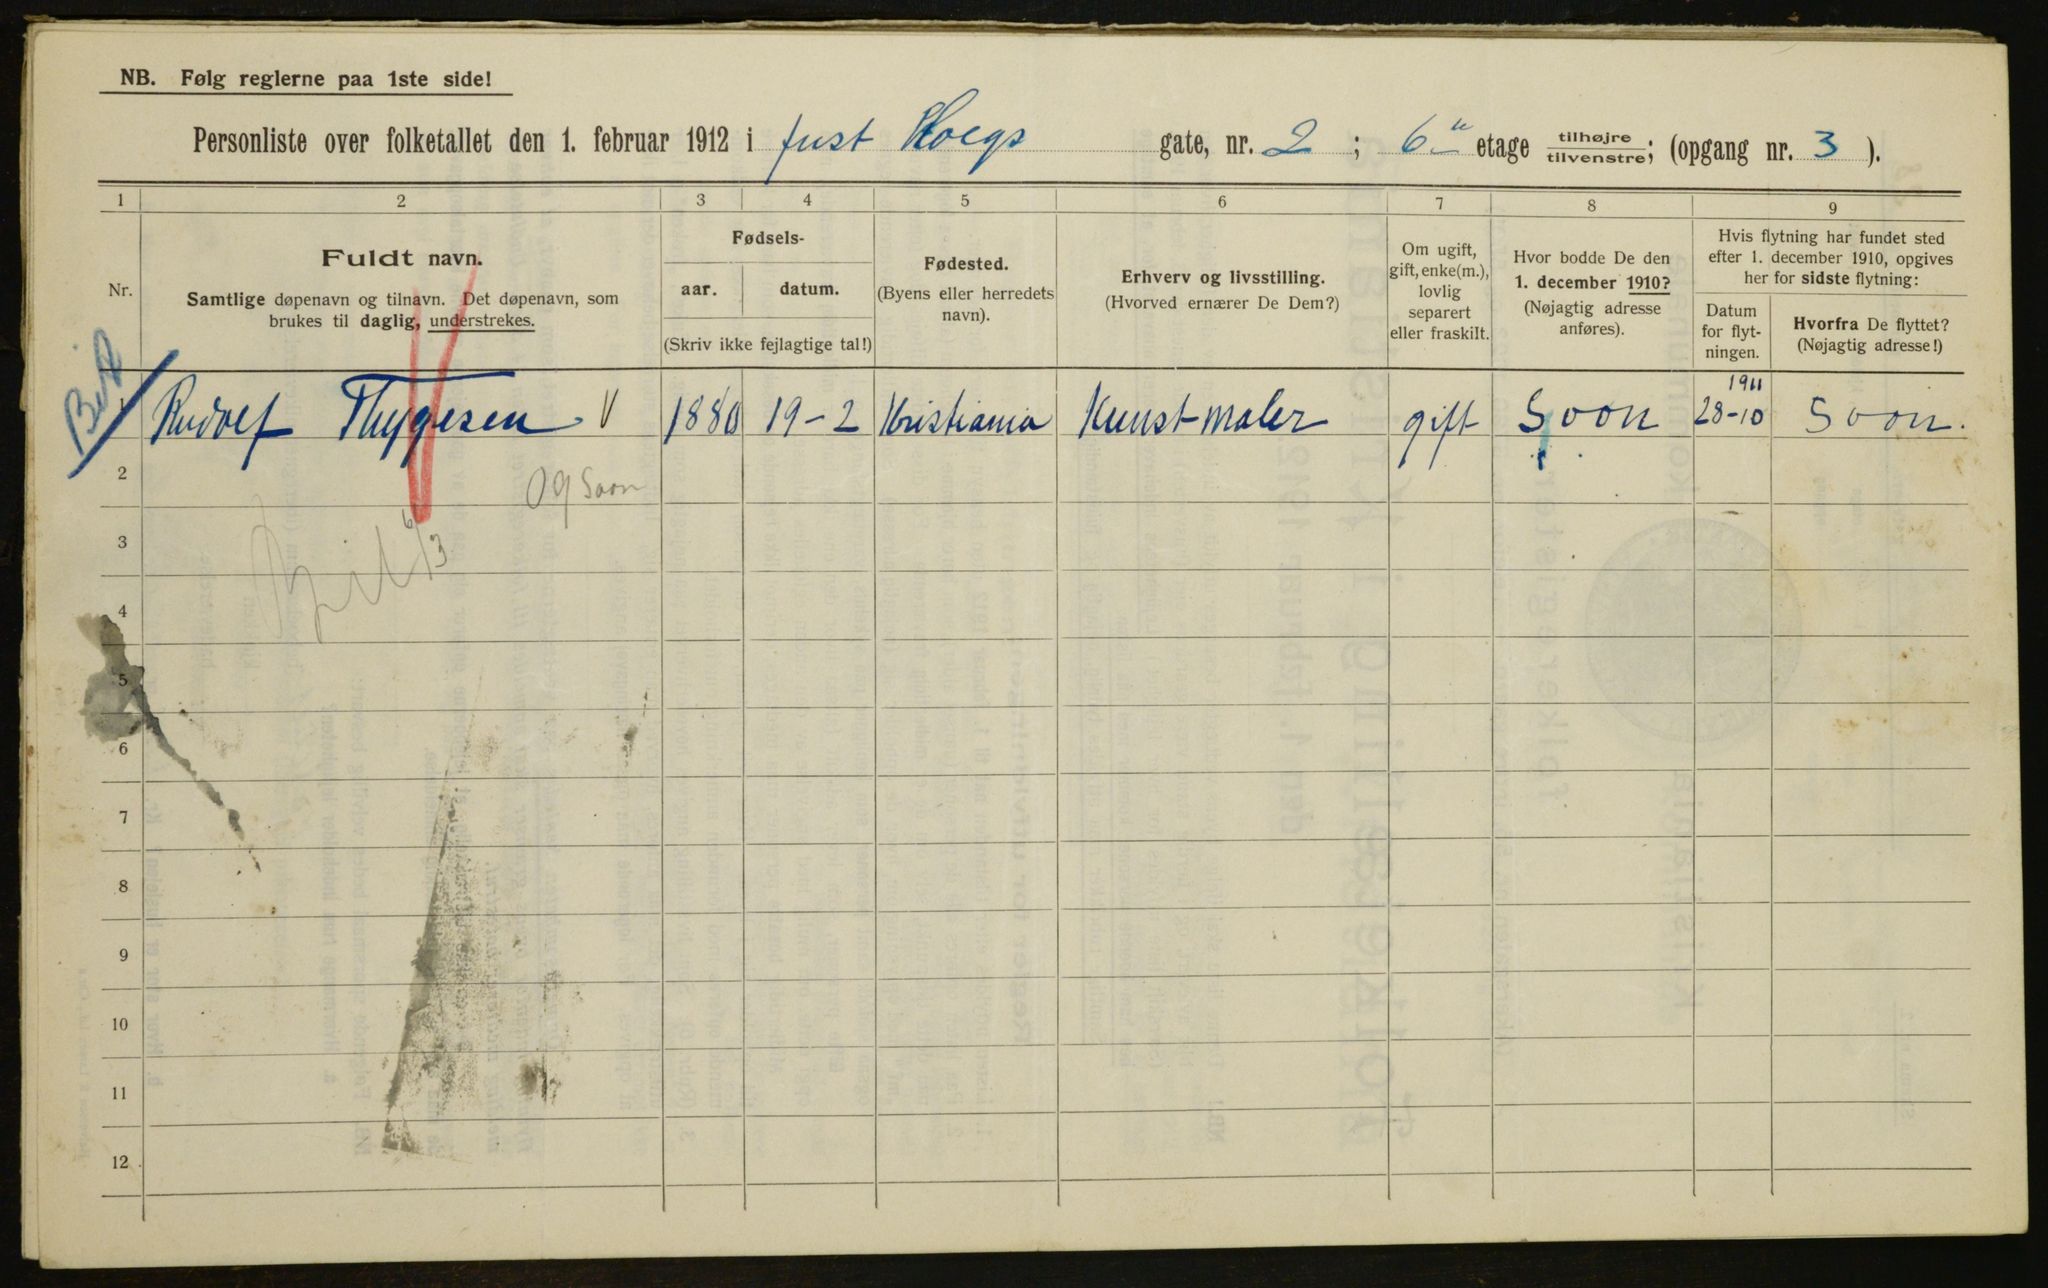 NB. Følg reglerne paa 1ste side!
Personliste over folketallet den 1. februar 1912 i Just Hoegs gate, nr. 2 ; 6 etage tilhøjre tilvenstre; (opgang nr. 3 ).
1 2 3 4 5 6 7 8 9
Nr.
Fuldt navn.
Samtlige døpenavn og tilnavn. Det døpenavn, som
brukes til daglig, understrekes.
Fødsels-
aar. datum.
(Skriv ikke fejlagtige tal!)
Fødested.
(Byens eller herredets
navn).
Erhverv og livsstilling.
(Hvorved ernærer De Dem?)
Om ugift,
gift, enke(m.),
lovlig
separert
eller fraskilt.
Hvor bodde De den
1. december 1910?
(Nøjagtig adresse
anføres).
Hvis flytning har fundet sted
efter 1. december 1910, opgives
her for sidste flytning:
Datum
for flyt-
ningen.
Hvorfra De flyttet?
(Nøjagtig adresse!)
1911
1 Rudolf Thygesen V 1880 19-2 Kristiania Kunstmaler gift Soon 28-10 Soon.
2
Og Soon
3
6/3
4
5
6
7
8
9
10
11
12